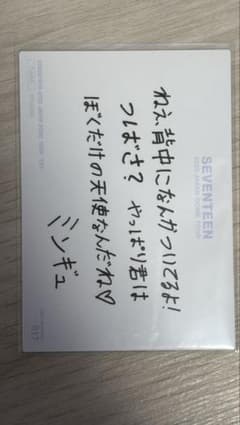 SEVENTEEN
ねぇ背中になんかついてるよ!
つばさ? やっぱり君は
ぼくだけの天使なんだね♡
ミンギュ